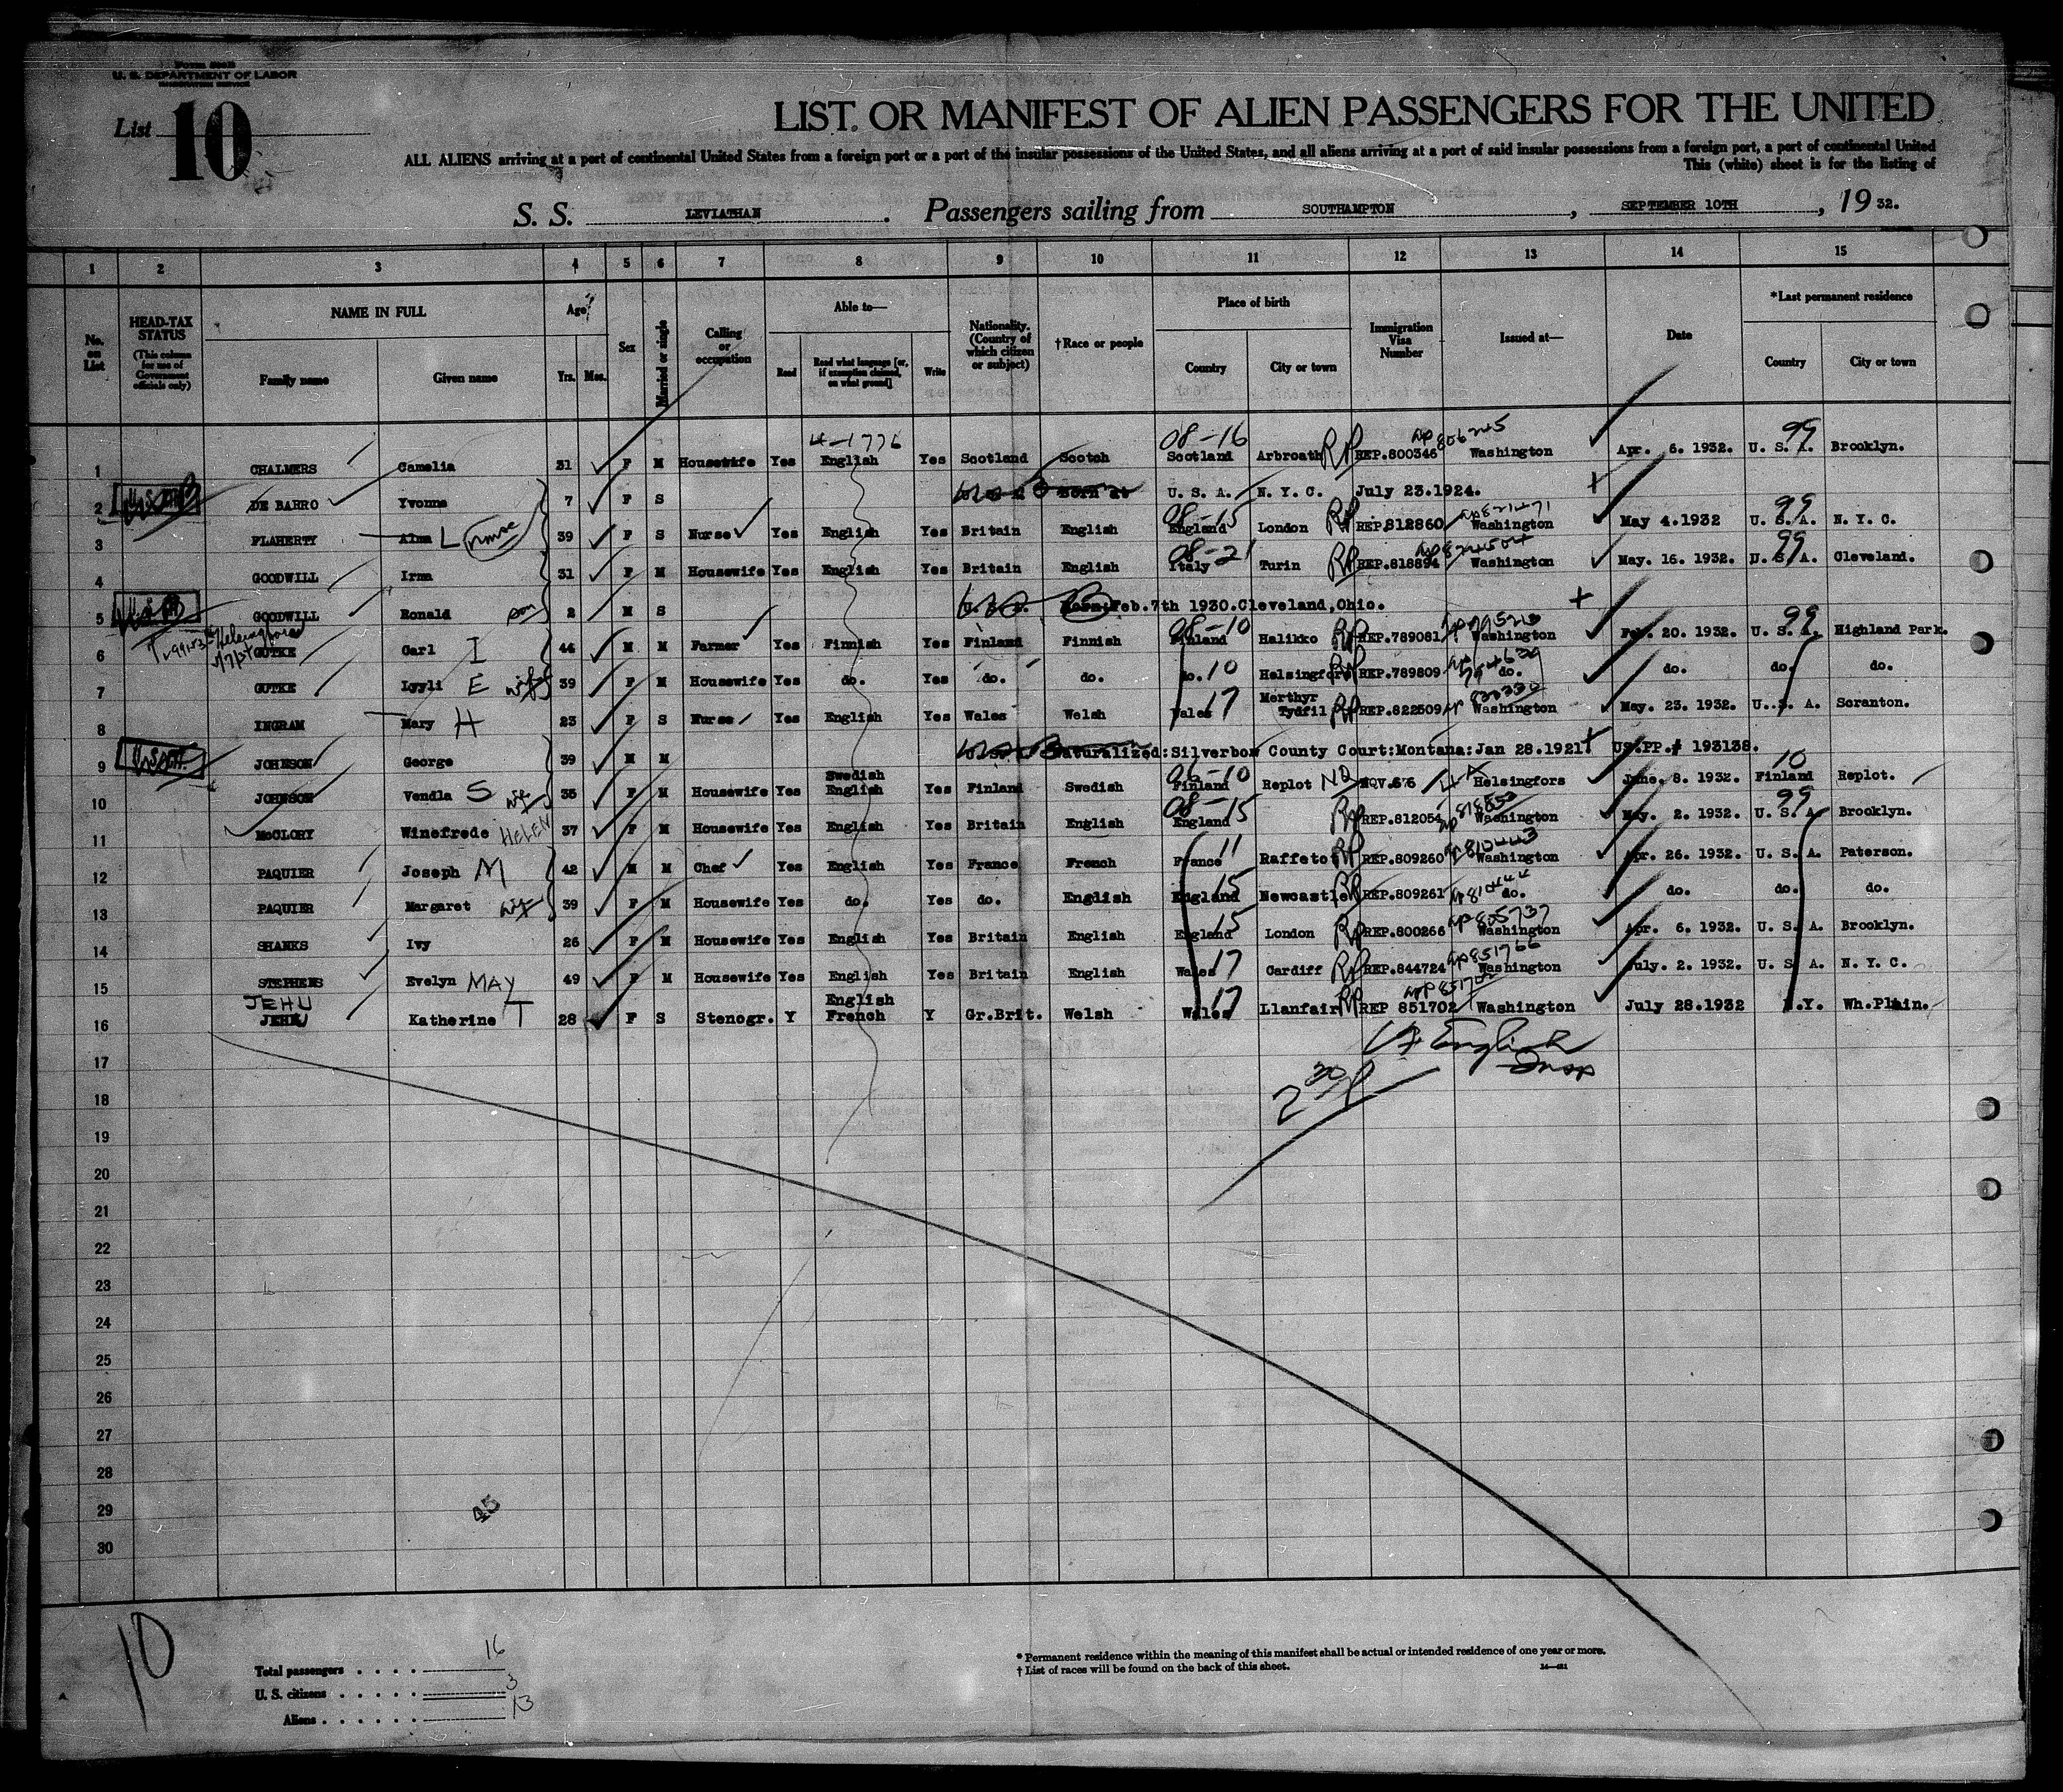 U. S. DEPARTMENT OF LABOR
IMMIGRATION SERVICE
List 10
LIST OR MANIFEST OF ALIEN PASSENGERS FOR THE UNITED
ALL ALIENS arriving at a port of continental United States from a foreign port or a port of the insular possessions of the United States, and all aliens arriving at a port of said insular possessions from a foreign port, a port of continental United
This (white) sheet is for the listing of
S. S. LEVIATHAN. Passengers sailing from SOUTHAMPTON, SEPTEMBER 10TH, 19 32.
1 2 3 4 5 6 7 8 9 10 11 12 13 14 15
No. on List
HEAD-TAX STATUS (This column for use of Government officials only)
NAME IN FULL Family name Given name
Age Yrs. Mos.
Sex
Married or single
Calling or occupation
Able to— Read Read what language [or, if exemption claimed, on what ground] Write
Nationality. (Country of which citizen or subject)
†Race or people
Place of birth Country City or town
Immigration Visa Number
Issued at—
Date
*Last permanent residence Country City or town
4-1776 08-16 99
1 CHALMERS Camelia 31 F M Housewife Yes English Yes Scotland Scotch Scotland Arbroath RP REP.800346 Washington Apr. 6. 1932. U. S. A. Brooklyn.
2 DE BARRO Yvonne 7 F S Born at U. S. A. N. Y. C. July 23.1924.
08-15 99
3 FLAHERTY Alma L nurse 39 F S Nurse Yes English Yes Britain English England London RP REP.812860 Washington May 4.1932 U. S. A. N. Y. C.
08-21 99
4 GOODWILL Irma 31 F M Housewife Yes English Yes Britain English Italy Turin RP REP.818894 Washington May. 16. 1932. U. S. A. Cleveland.
5 GOODWILL Ronald son 2 M S Born:Feb.7th 1930.Cleveland,Ohio.
08-10 99
6 GUTKE Carl I 44 M M Farmer Yes Finnish Yes Finland Finnish Finland Halikko RP REP.789081 Washington Feb. 20. 1932. U. S. A. Highland Park.
7 GUTKE Lyyli E wife 39 F M Housewife Yes do. Yes do. do. do. 10 Helsingfors RP REP.789809 do. do. do. do.
8 INGRAM Mary H 23 F S Nurse Yes English Yes Wales Welsh Wales 17 Merthyr Tydfil RP REP.822509 Washington May. 23. 1932. U. S. A. Scranton.
9 JOHNSON George 39 M M Naturalized:Silverbow County Court:Montana:Jan 28.1921 US.PP.# 193138.
06-10 10
10 JOHNSON Vendla S wife 35 F M Housewife Yes Swedish English Yes Finland Swedish Finland Replot NQ NQV.676 Helsingfors June. 8. 1932. Finland Replot.
08-15 99
11 McCLORY Winefrede HELEN 37 F M Housewife Yes English Yes Britain English England RP REP.812054 Washington May. 2. 1932. U. S. A. Brooklyn.
12 PAQUIER Joseph M 42 M M Chef Yes English Yes France French France 11 Raffetot RP REP.809260 Washington Apr. 26. 1932. U. S. A. Paterson.
13 PAQUIER Margaret wife 39 F M Housewife Yes do. Yes do. English England 15 Newcastle RP REP.809261 do. do. do. do.
14 SHANKS Ivy 26 F M Housewife Yes English Yes Britain English England 15 London RP REP.800266 Washington Apr. 6. 1932. U. S. A. Brooklyn.
15 STEPHENS Evelyn MAY 49 F M Housewife Yes English Yes Britain English Wales 17 Cardiff RP REP.844724 Washington July. 2. 1932. U. S. A. N. Y. C.
JEHU
16 JEHU Katherine T 28 F S Stenogr. Y English French Y Gr.Brit. Welsh Wales 17 Llanfair RP REP 851702 Washington July 28.1932 N.Y. Wh.Plain.
English
Insp
2 30 P
17
18
19
20
21
22
23
24
25
26
27
28
29
30
45
10
Total passengers . . . . 16
U. S. citizens . . . . . 3
Aliens . . . . . . 13
* Permanent residence within the meaning of this manifest shall be actual or intended residence of one year or more.
† List of races will be found on the back of this sheet.